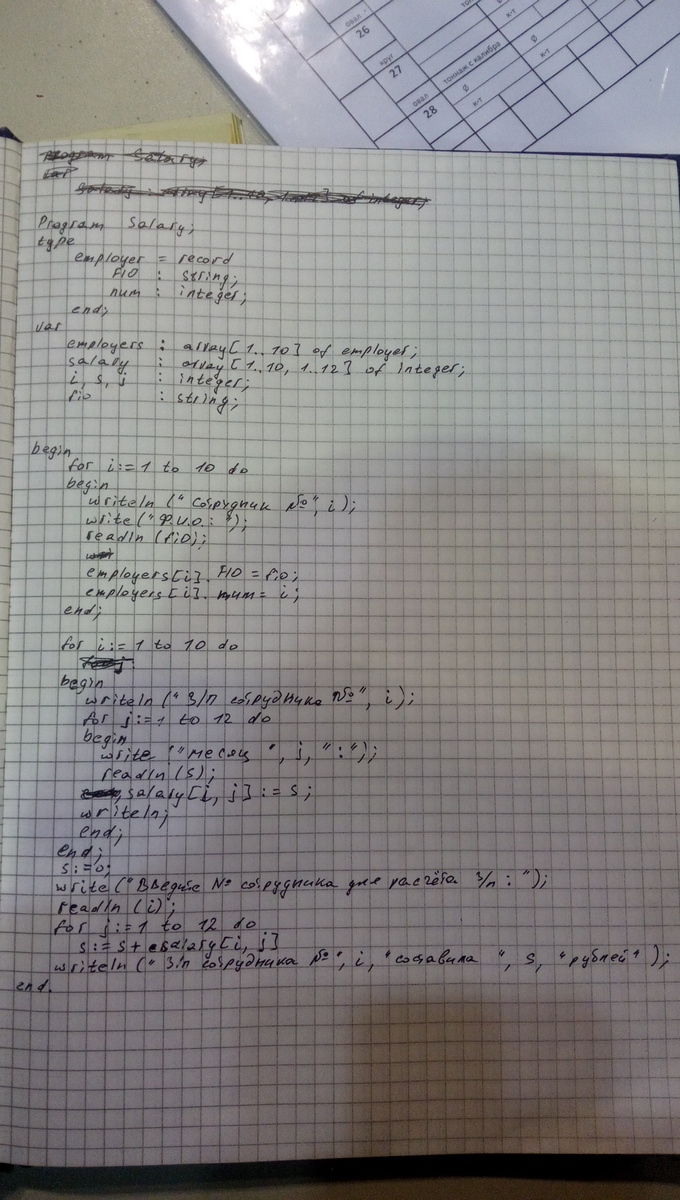 овал
26
круг
27
овал
28
тоннаж с калибра
Ø
к-т
Ø
к-т
Ø
к-т
Program Salary;
var
salary : array[1..10, 1..12] of integer;
Program Salary;
type
employer = record
FIO : string;
num : integer;
end;
var
employers : array[1..10] of employer;
salary : array[1..10, 1..12] of integer;
i, s, j : integer;
fio : string;
begin
for i:=1 to 10 do
begin
writeln ("Сотрудник №", i);
write("Ф.И.О.: ");
readln (fio);
employers[i]. FIO = fio;
employers[i]. num = i;
end;
for i:= 1 to 10 do
for j:
begin
writeln ("З/п сотрудника №", i);
for j:=1 to 12 do
begin
write "месяц ", j, ":");
readln (s);
salary[i, j] := s;
writeln;
end;
end;
s:=0;
write ("Введите № сотрудника для расчёта з/п : ");
readln (i);
for j:=1 to 12 do
s:= s + salary[i, j]
writeln (" З/п сотрудника №", i, "составила ", s, "рублей");
end.